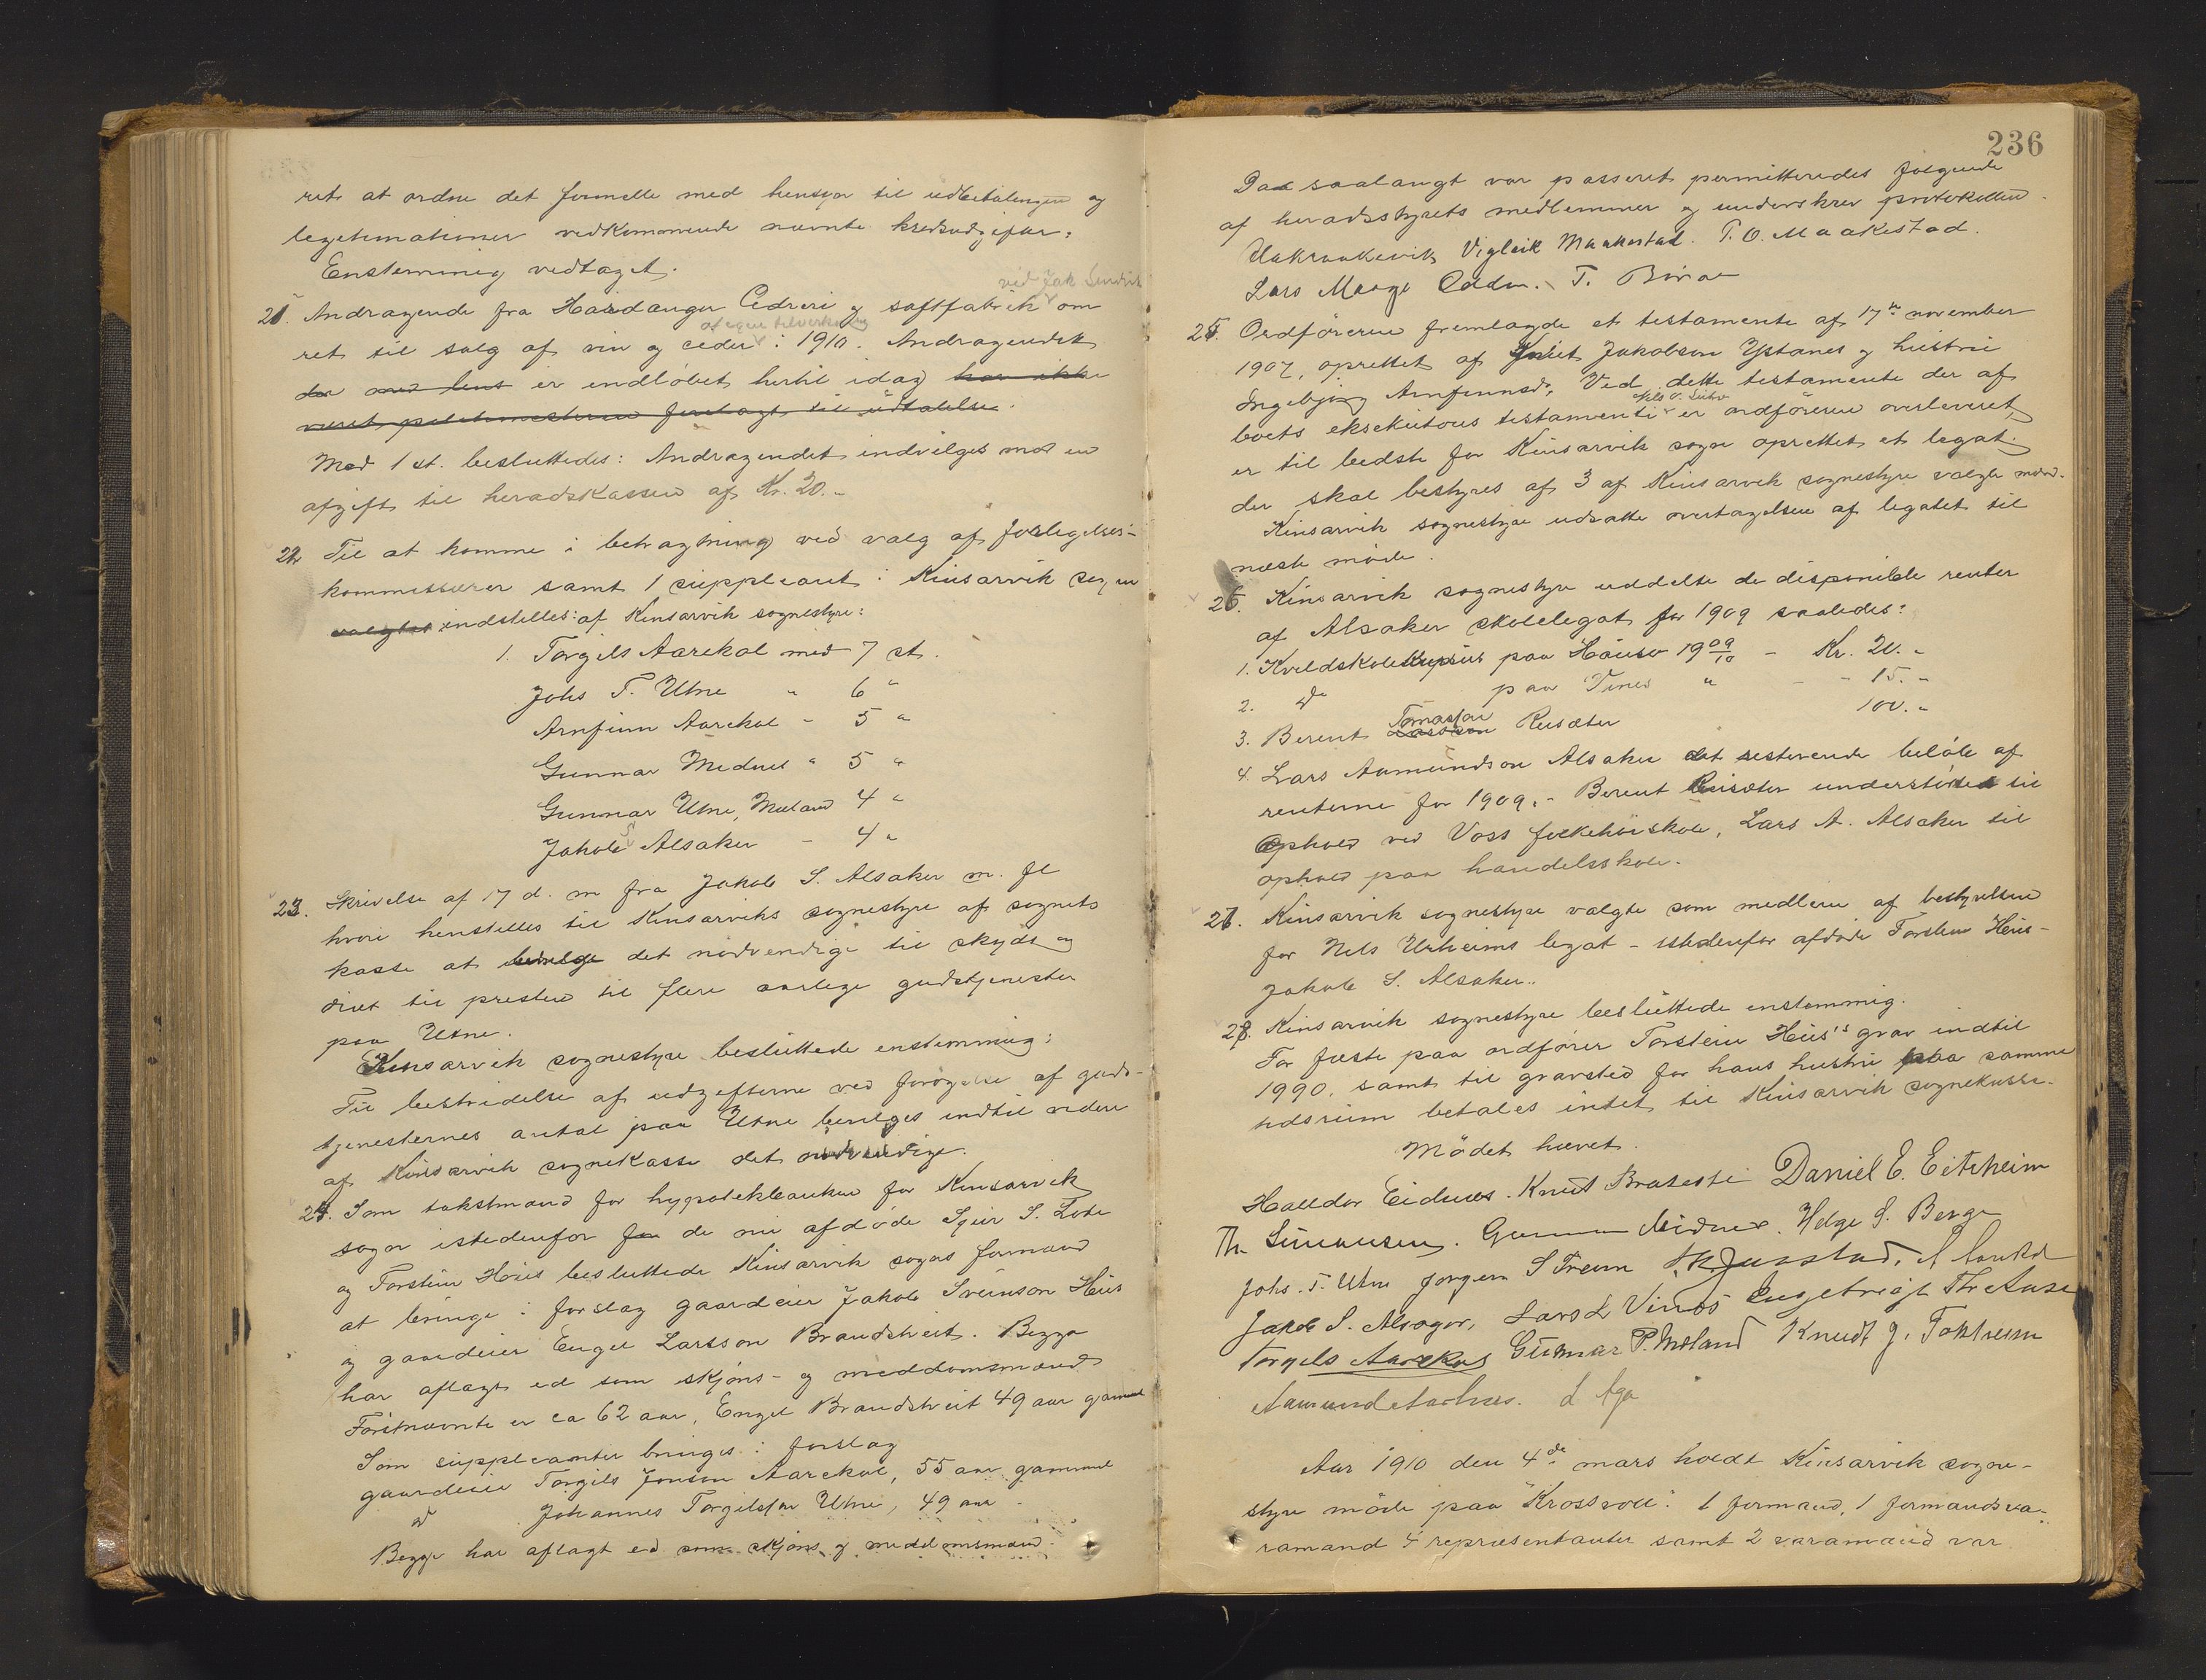 ret at ordne det formelle med hensyn til udbetalingen og
legitimationer vedkommende nævnte kredsudgifter.
Enstemmig vedtaget.
ved Jak
21. Andragende fra Hardanger Cedreri og saftfabrik om
af egen tilverkning
ret til salg af vin og ceder i 1910. Andragendet
der med lens er indløbet hertil idag har ikke
været politimesteren forelagt til udtalelse.
Med 1 st. besluttedes: Andragendet indvilges mot en
afgift til heradskassen af Kr. 20.-
22. Til at komme i betragtning ved valg af forligelses-
kommissærer samt 1 suppleant i Kinsarvik sogn
valgtes indstilles: af Kinsarvik sognestyre:
1. Torgils Aarekol med 7 st.
Johs T. Utne " 6 "
Arnfinn Aarekol - 5 "
Gunnar Midnes " 5 "
Gunnar Utne, Mæland 4 "
Jakob S Alsaker - 4 "
23. Skrivelse af 17 d. m fra Jakob S. Alsaker m. fl
hvori henstilles til Kinsarviks sognestyre af sognets
kasse at bevilge det nødvendige til skyds og
diæt til presten til flere aarlige gudstjenester
paa Utne.
Kinsarvik sognestyre besluttede enstemmig:
Til bestridelse af udgifterne ved forøgelse af guds-
tjenesternes antal paa Utne bevilges indtil videre
af Kinsarvik sognekasse det nødvendige.
24. Som takstmænd for hypotekbanken for Kinsarvik
sogn istedenfor for de nu afdøde Sjur S. Lote
og Torstein Hus besluttede Kinsarvik sogns formænd
at bringe i forslag gaardeier Jakob Sveinson Hus
og gaardeier Engel Larsson Brandstveit. Begge
har aflagt ed som skjøns- og meddomsmænd
Førstnævnte er ca 62 aar, Engel Brandstveit 49 aar gammel
Som suppleanter bringes i forslag
gaardeier Torgils Jonson Aarekol, 55 aar gammel
do Johannes Torgilsson Utne, 49 aar -
Begge har aflagt ed som skjøns og meddomsmænd.
236
Da saalangt var passeret permitteredes følgende
af heradsstyrets medlemmer og underskrev protokollen.
Vigleik Maakestad. T. O. Maakestad.
Lars Maage Odda. T.
25. Ordføreren fremlagde et testamente af 17de november
1907, oprettet af Knut Jakobson Ystanes og hustru
Ingebjørg Arnfinnsdr. Ved dette testamente der af
Nils
boets eksekutous testamenti er ordføreren overleveret
er til bedste for Kinsarvik sogn oprettet et legat
der skal bestyres af 3 af Kinsarvik sognestyre valgte mænd.
Kinsarvik sognestyre udsatte overtagelsen af legatet til
næste møde.
26. Kinsarvik sognestyre uddelte de disponible renter
af Alsaker skolelegat for 1909 saaledes:
1. Kveldskolekursus paa Hauso 1909/10 - Kr. 20.-
2. do paa Vines " - - 15.-
Tomasson
3. Berent Larsson Reisæter 100.-
4. Lars Aamundson Alsaker det resterende beløb af
renterne for 1909.- Berent Reisæter understøttes til
ophold ved Voss folkehøiskole, Lars A. Alsaker til
ophold paa handelsskole.
27. Kinsarvik sognestyre valgte som medlem af bestyrelsen
for Nils Urheims legat - istedenfor afdøde Torstein Hus -
Jakob S. Alsaker.
28. Kinsarvik sognestyre besluttede enstemmig.
For fæste paa ordfører Torstein Hus's grav indtil
1990, samt til gravsted for hans hustru paa samme
tidsrum betales intet til Kinsarvik sognekasse.
Mødet hævet.
Halldor Eidnes. Knut Daniel E. Eitrheim
Th. Simonsen. Gunnar Midnes. Helge S. Berge
Johs. T. Utne Jørgen S
Jakob S. Alsager, Lars L Vines
Torgils Aarekol Gunnar P. Mæland Knudt J. Tokheim
L Aga
Aar 1910 den 4de mars holdt Kinsarvik sogne-
styre møde paa "Krossvoll". 1 formand, 1 formandsva-
ramand 4 repræsentanter samt 2 varamænd var